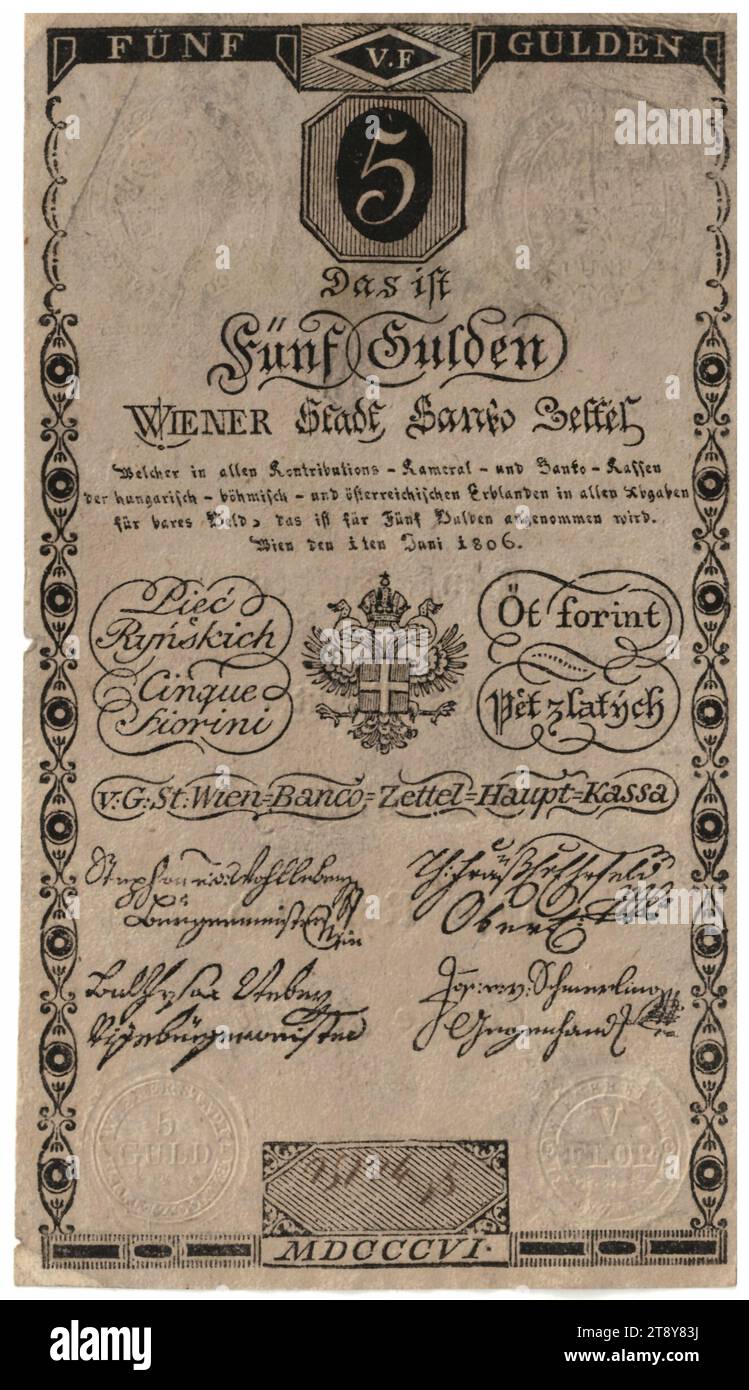 FÜNF V.F GULDEN
5
Das ist
Fünf Gulden
WIENER Stadt Banko Zettel
Welcher in allen Kontributions - Kameral - und Banko - Kassen
der hungarisch - böhmisch - und österreichischen Erblanden in allen Abgaben
für bares Geld, das ist für Fünf Gulden angenommen wird.
Wien den 1ten Juni 1806.
Pięć
Ryńskich
Cinque
Fiorini
Öt forint
Pět zlatých
V: G: St: Wien=Banco=Zettel=Haupt=Kassa
Stephan
Burgermeister
Jos: Schmerling
5
GULD
V
FLOR
MDCCCVI.
alamy
Image ID: 2T8Y83J
www.alamy.com